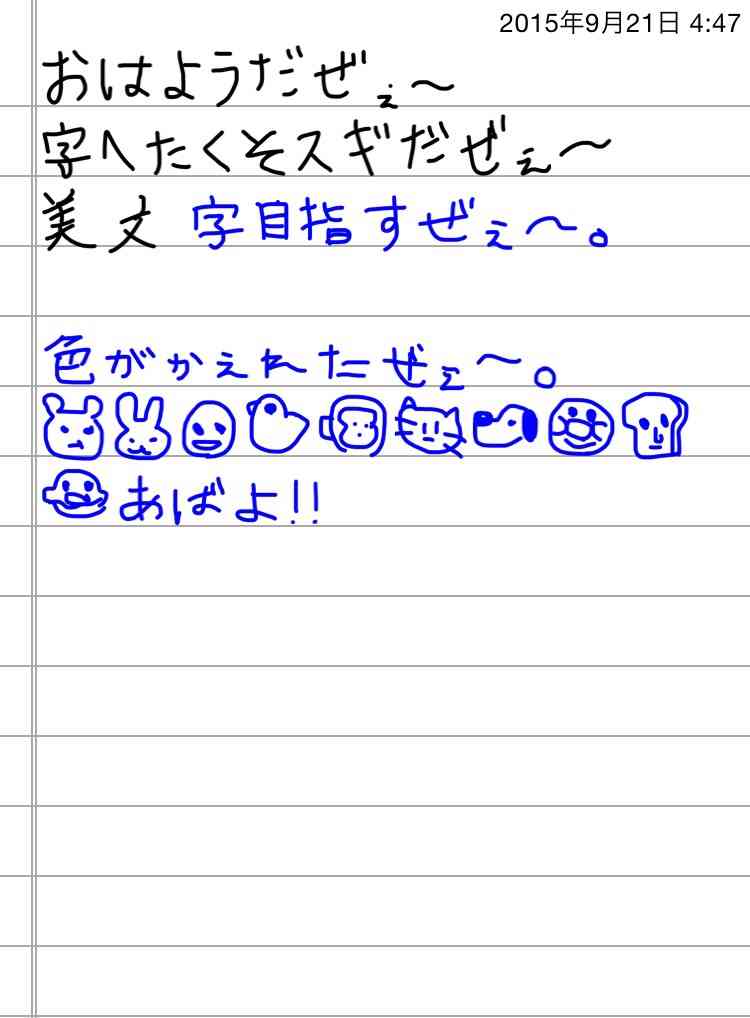 2015年9月21日 4:47
おはようだぜぇ〜
字へたくそスギだぜぇ〜
美文字目指すぜぇ〜。
色がかえれたぜぇ〜。
あばよ!!